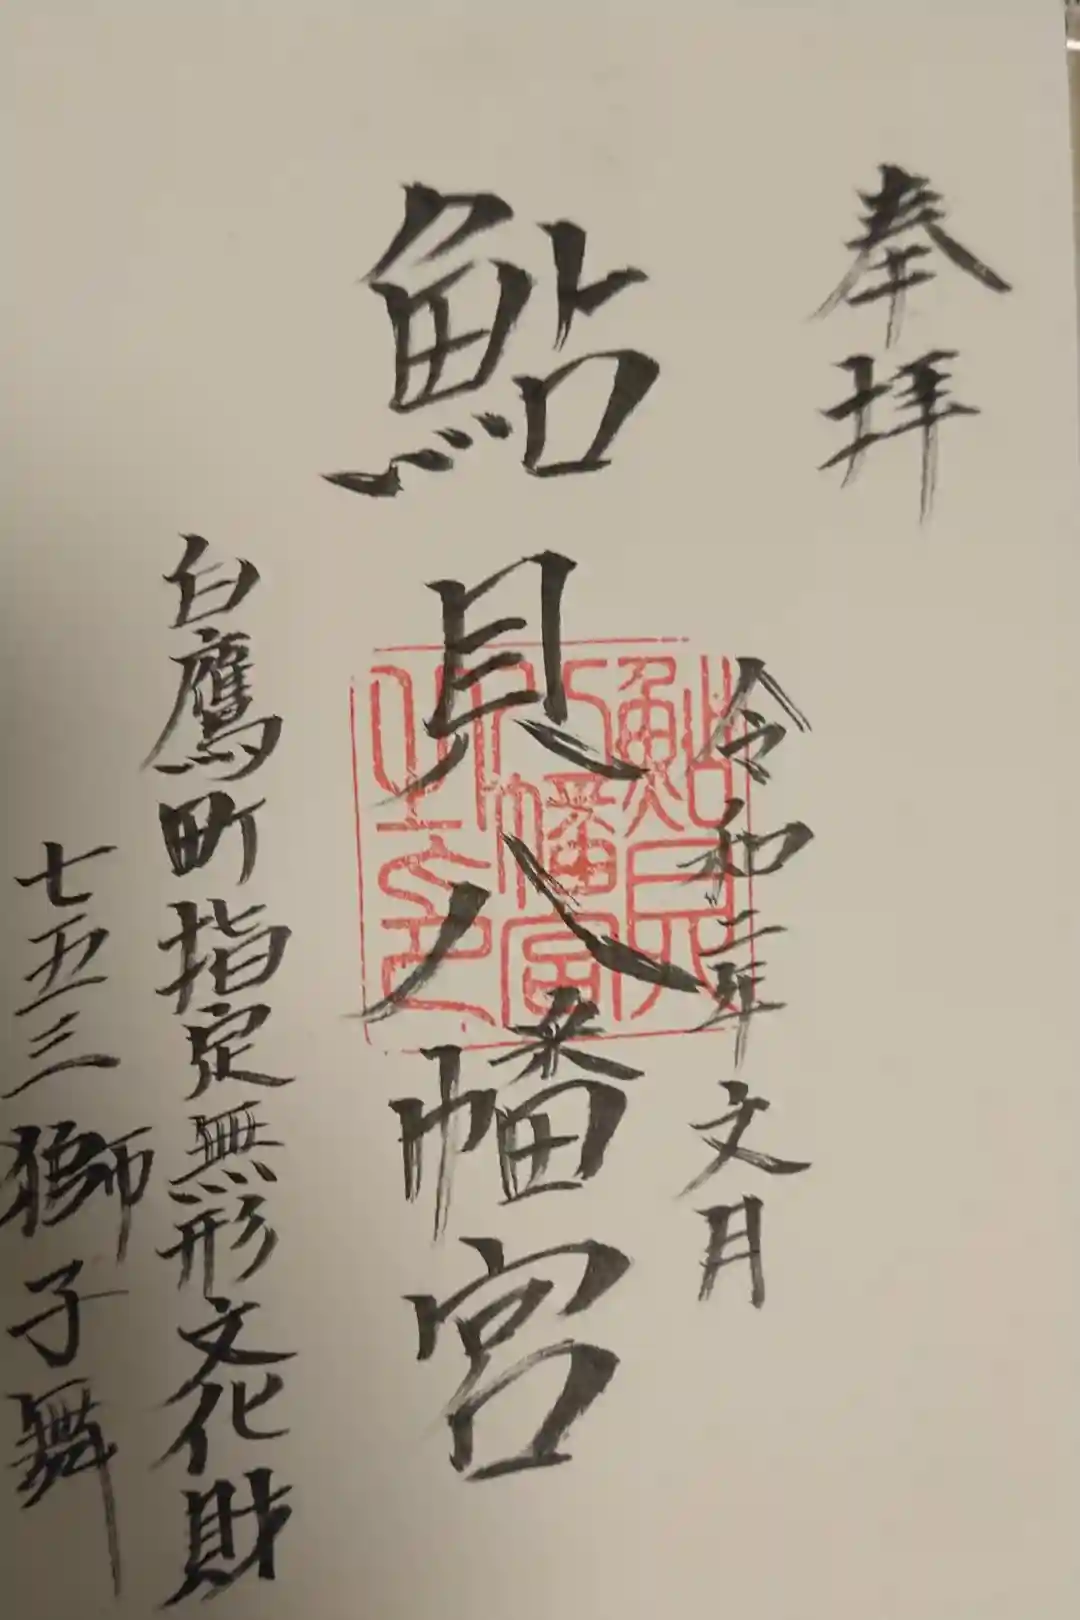 奉拝
令和二年 文月
鮎貝八幡宮
鮎貝八幡宮之印
白鷹町指定無形文化財
七五三獅子舞